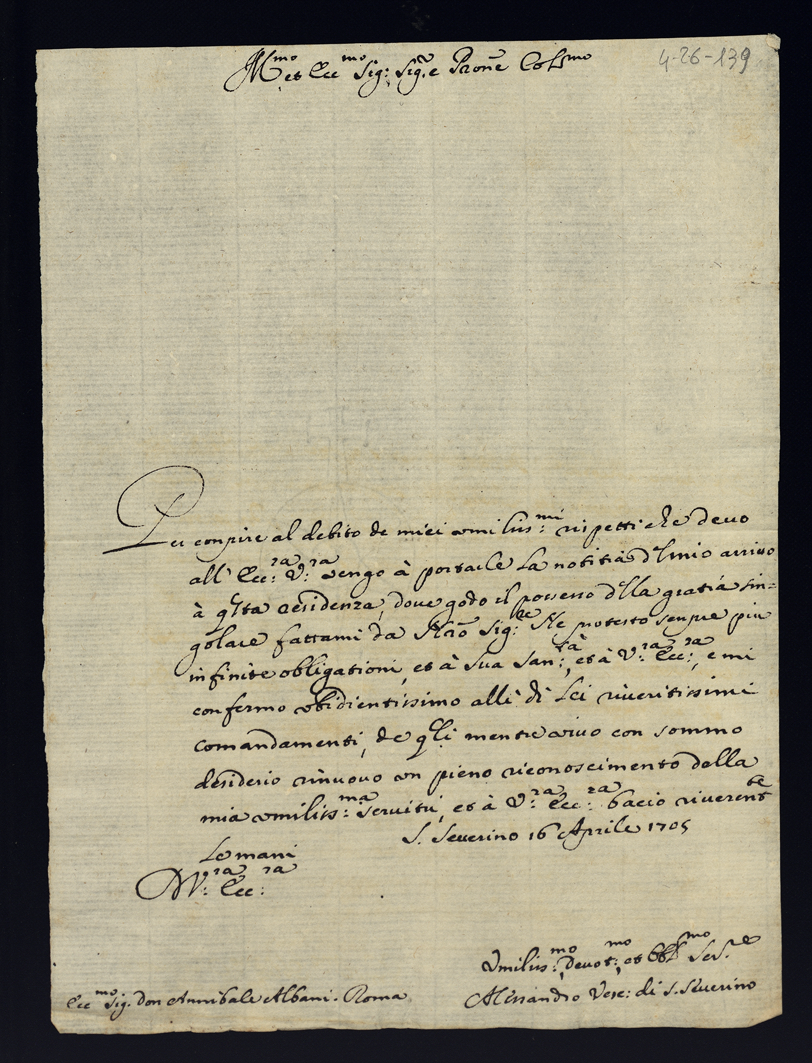 4-26-139
Ill.mo et Ecc.mo Sig: Sig.re e Prone Col.mo
Per conpire al debito de miei umiliss:mi rispetti che devo
all' Ecc:za V:ra vengo à portarle la notitia d'l mio arrivo
à q'sta residenza, dove godo il possesso d'lla gratia sin=
golare fattami da Nro Sig:re Ne protesto senpre più
infinite obligationi, et à sua San:tà, et à V:ra Ecc:za, e mi
confermo obidientissimo alli di Lei riveritissimi
comandamenti, de q'li mentre vivo con sommo
desiderio rinuovo un pieno riconoscimento della
mia umiliss:ma servitù, et à V:ra Ecc:za bacio riverent.te
le mani
S. Severino 16 Aprile 1705
D V:ra Ecc:za
Umiliss:mo, devot:mo, et Obb.mo Ser.re
Alessandro Vesc: di S. Severino
Ecc.mo Sig. don Annibale Albani. Roma